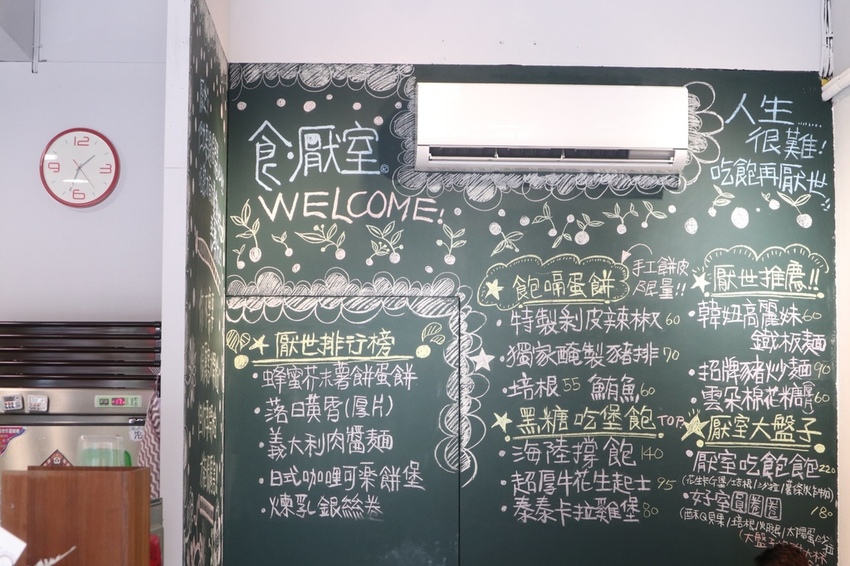 食·厭室®
WELCOME!
人生......
很難!
吃飽再厭世
厭世排行榜
蜂蜜芥末薯餅蛋餅
落日黃昏(厚片)
義大利肉醬麵
日式咖哩可樂餅堡
煉乳銀絲卷
飽嗝蛋餅
手工餅皮
限量!!
特製剝皮辣椒 60
獨家醃製豬排 70
培根 55 鮪魚 60
黑糖吃堡飽 TOP
海陸撐飽 140
超厚牛花生起士 95
泰泰卡拉雞堡 80
厭世推薦!!
韓妞高麗妹 60
鐵板麵
招牌豬炒麵 90
雲朵棉花糖 60
厭室大盤子
厭室吃飽飽 220
好室圓圈圈 180
12
3
6
9